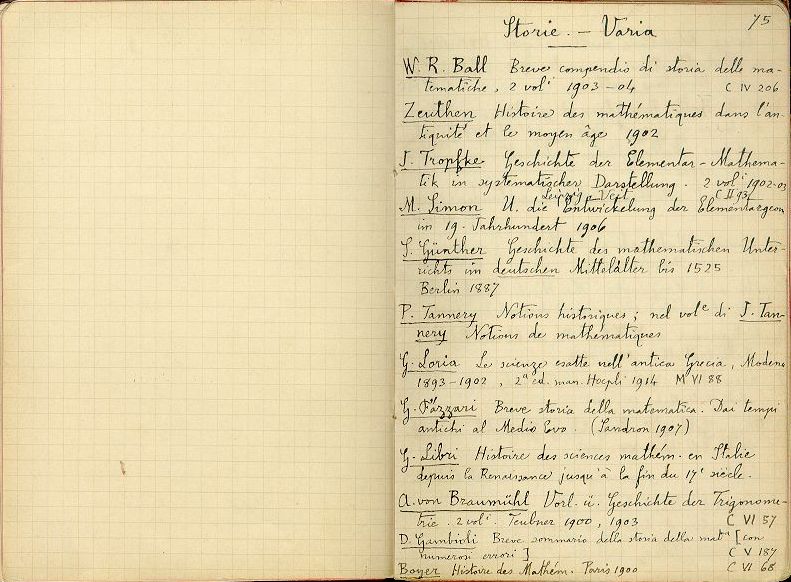 75
Storie. – Varia
W. R. Ball Breve compendio di storia delle ma-
tematiche, 2 voli 1903–04 C IV 206
Zeuthen Histoire des mathématiques dans l'an-
tiquité et le moyen âge 1902
J. Tropfke Geschichte der Elementar-Mathema-
tik in systematischer Darstellung. 2 voli 1902-03
Leipzig – Veit C II 93
M. Simon U. die Entwickelung der Elementargeom
im 19. Jahrhundert 1906
S. Günther Geschichte des mathematischen Unter-
richts im deutschen Mittelalter bis 1525
Berlin 1887
P. Tannery Notions historiques; nel vole di J. Tan-
nery Notions de mathématiques
G. Loria Le scienze esatte nell'antica Grecia, Modena
1893–1902, 2a ed. man. Hoepli 1914 M VI 88
G. Fazzari Breve storia della matematica. Dai tempi
antichi al Medio Evo. (Sandron 1907)
G. Libri Histoire des sciences mathém. en Italie
depuis la Renaissance jusqu'à la fin du 17e siècle.
A. von Braumühl Vorl. ü. Geschichte der Trigonome-
trie. 2 voli. Teubner 1900, 1903 C VI 57
D. Gambioli Breve sommario della storia della mata [con
numerosi errori] C V 187
Boyer Histoire des Mathém. Paris 1900 C VI 68